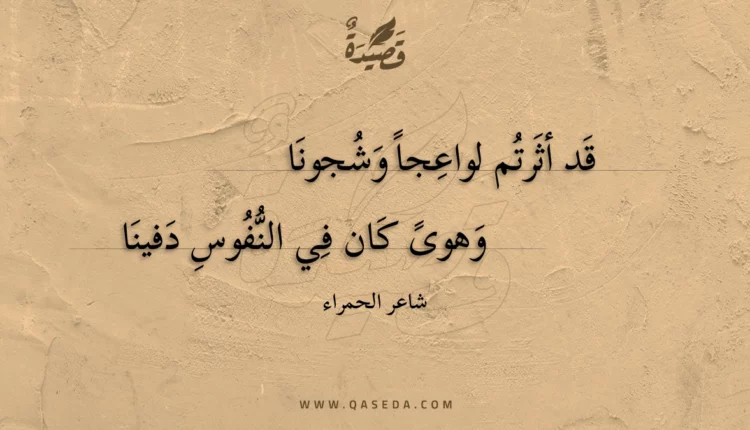 قَصِيْدَةٌ
قَد أثَرتُم لواعِجاً وَشُجونَا
وَهوىً كَان فِي النُّفُوسِ دَفينَا
شاعر الحمراء
WWW.QASEDA.COM